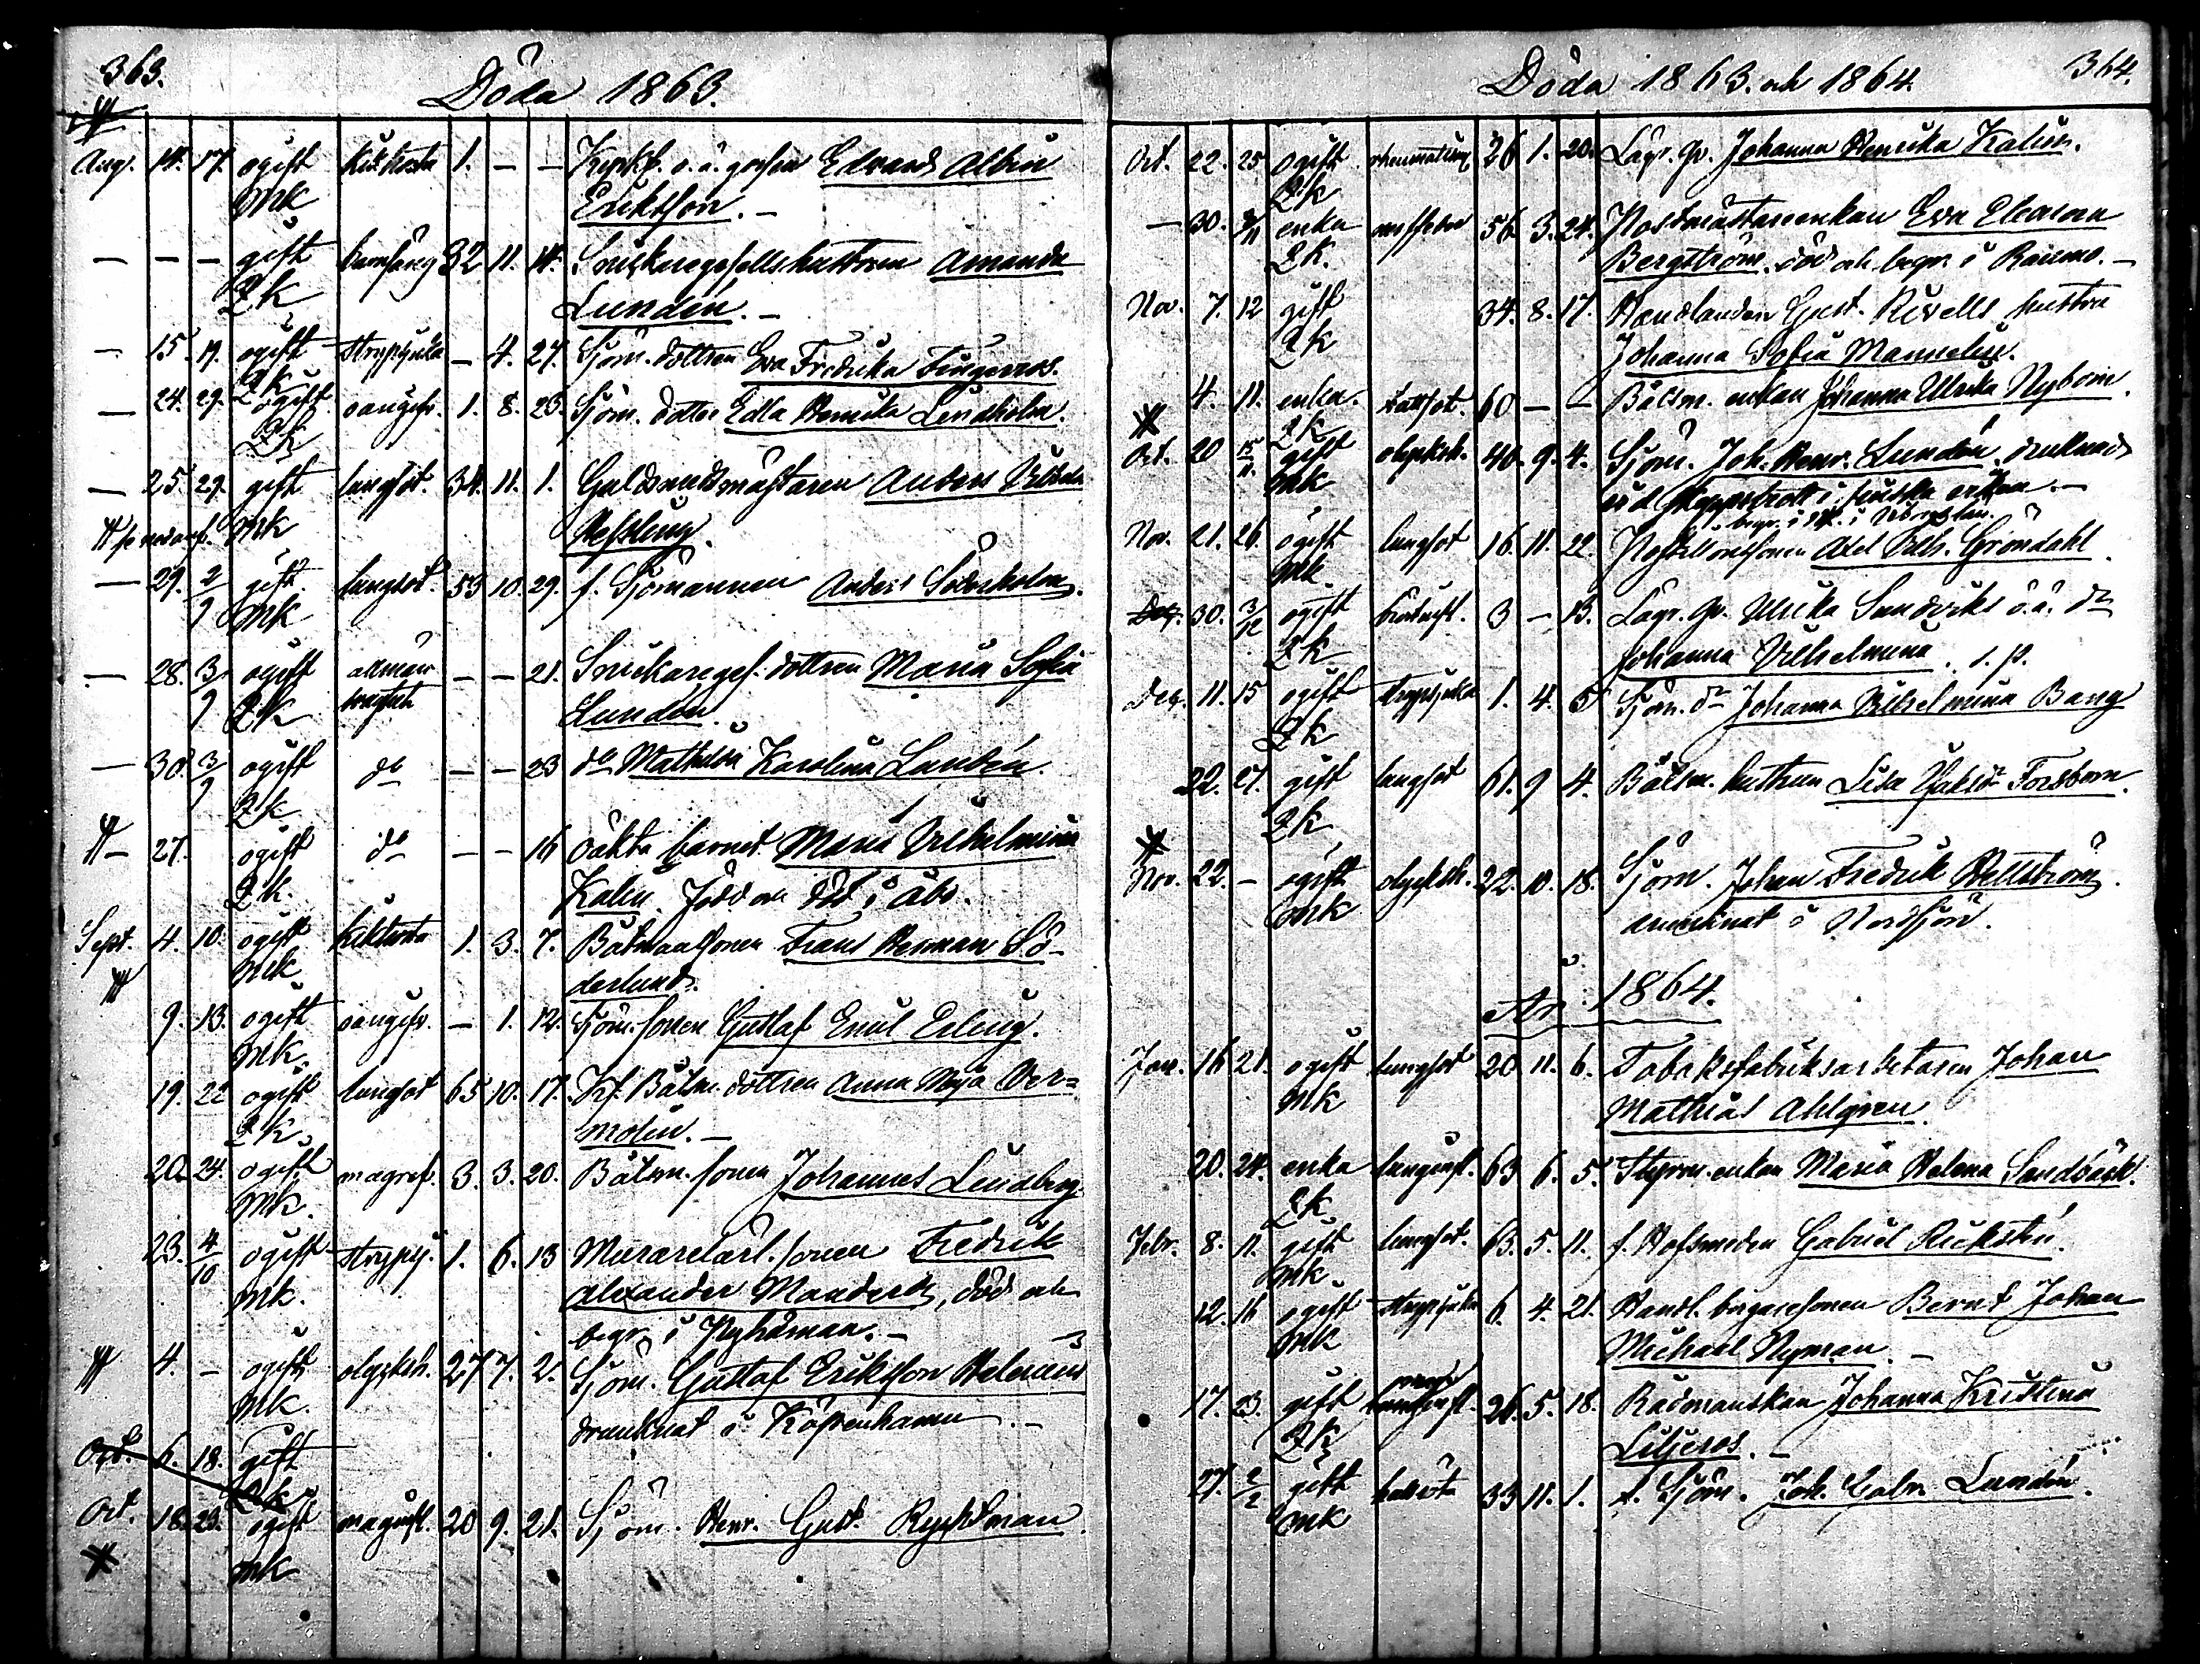 363.
Döda 1863.
Aug. 14. 17. ogift kikhosta 1. – – Edvard Albin
mk Eriksson. –
– – – gift barnsäng 32 11. 14. Amanda
Qk Lundén. –
– 15. 19. ogift strypsjuka – 4. 27. Sjöm. dottren Eva Fredrika Fingerroos.
Qk
– 24. 29. ogift 1. 8. 23. Sjöm. dotter Edla Henrika Lindholm.
Qk
– 25. 29. gift lungsot. 34. 11. 1. Guldsmedsmästaren Anders Vilhelm
mk Hessling.
– 29. 2/9 gift lungsot. 53 10. 29. f. Sjömannen Anders Söderholm.
mk
– 28. 3/9 ogift allmän – – 21. Snickareges. dottren Maria Sofia
Qk Lundén.
– 30. 3/9 ogift do – – 23 do Mathilda Karolina Lundén.
Qk
– 27. ogift do – – 16 oäkta barnet Maria Vilhelmina
Qk. Kalin. Född och död i Åbo.
Sept. 4. 10. ogift kikhosta 1. 3. 7. Båtsmanssonen Frans Herman Sö-
mk derlund.
9. 13. ogift – 1. 12. Sjöm. sonen Gustaf Emil Erling.
mk.
19. 22 ogift lungsot 65 10. 17. Båtsm. dottren Anna Maja Ver=
Qk. molin. –
20. 24. ogift magref. 3. 3. 20. Båtsm. sonen Johannes Lindberg.
mk.
23. 4/10 ogift strypsj. 1. 6. 13 Murarelärl. sonen Fredrik
mk. Alexander Mandard, död och
begr. i Nyhamn. –
4. – ogift olycksh. 27 7. 2. Sjöm. Gustaf Eriksson Helenius
mk. drunknat i Köpenhamn. –
Oct. 6. 18. gift
Qk
Oct. 18. 23. ogift maginfl. 20 9. 21. Sjöm. Henr. Gust. Ryckman.
mk
Döda 1863. och 1864.
364.
Oct. 22. 25 ogift rheumatism 26 1. 20. Lägr. qv. Johanna Henrika Kalin.
Qk
– 30. enka 56. 3. 24. Postmästareenkan Eva Eleonora
Qk. Bergström. död och begr. i Raumo. –
Nov. 7. 12 gift 34. 8. 17. Handlanden Gust. Rivells hustru
Qk Johanna Sofia Mannelin.
4. 11. enka. vattsot. 60 – – Båtsm. enkan Johanna Ulrika Nybom.
Qk
Oct. 20 gift olycksh. 40. 9. 4. Sjöm. Joh. Henr. Lundén, drunknad
mk vid skeppsbrott i finska viken. –
Nov. 21. 26 ogift lungsot 16. 11. 22. Postillonssonen Axel Vilh. Gröndahl.
mk
Dec. 30. 3/12 ogift 3 – 13. Lägr. qv. Ulrika Sandviks o.ä. dr
Qk Johanna Vilhelmina.
Dec. 11. 15 ogift strypsjuka 1. 4. 5 Sjöm. dr Johanna Vilhelmina Bang
Qk
22. 27. gift lungsot 61. 9 4. Båtsm. hustrun Lisa Jaksdr Forsbom.
Qk
Nov. 22. – ogift olycksh. 22. 10. 18. Sjöm. Johan Fredrik Hellström.
mk drunknat i Nordsjön.
År 1864.
Jan. 16 21. ogift lungsot 20 11. 6. Tobaksfabriksarbetaren Johan
mk Mathias Ahlgren.
20. 24. enka lunginfl. 63 6. 5. Styrm. enkan Maria Helena Sandbäck.
Qk
Febr. 8. 11. gift lungsot. 63. 5. 11. f. Hofsmeden Gabriel Rickstén.
mk.
12. 16 ogift strypsjuka 6. 4. 21. Handl. borgaresonen Bernt Johan
mk Michael Nyman. –
17. 23. gift 26. 5. 18. Rådmanskan Johanna Kristina
Qk Liljeros. –
27. 2/2 gift 33 11. 1. f. Sjöm. Joh. Gabr. Lundén.
mk